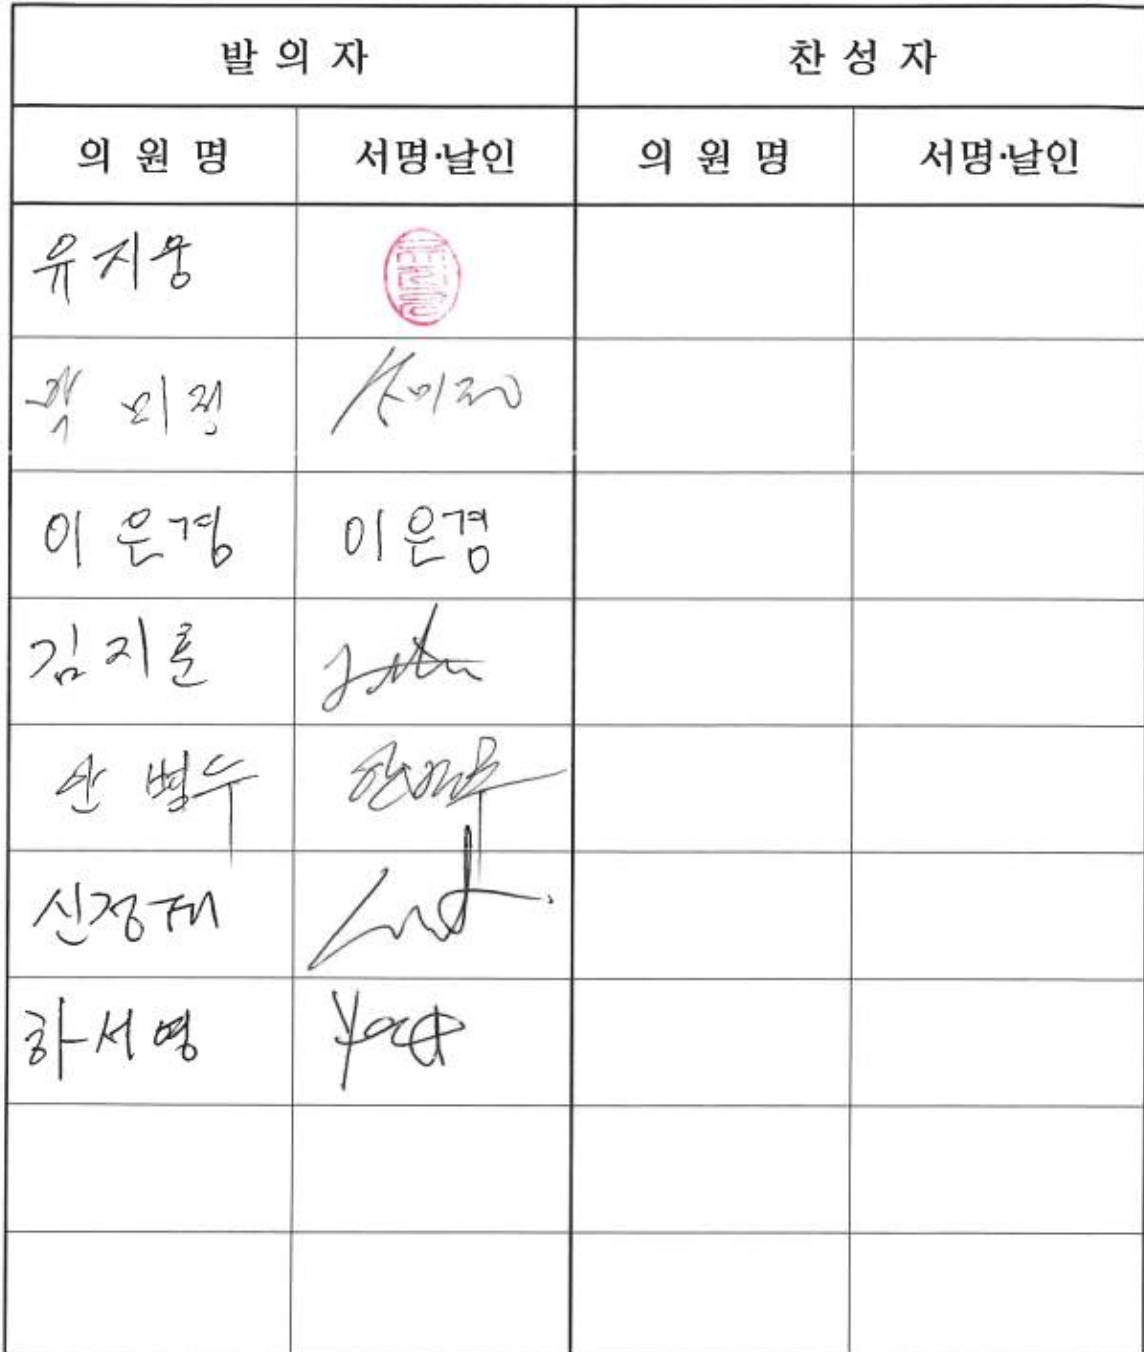 발 의 자 찬 성 자
의 원 명 서명·날인 의 원 명 서명·날인
유지웅
곽 미정
이 은경 이은경
김지훈
안 병두
신정태
하서영